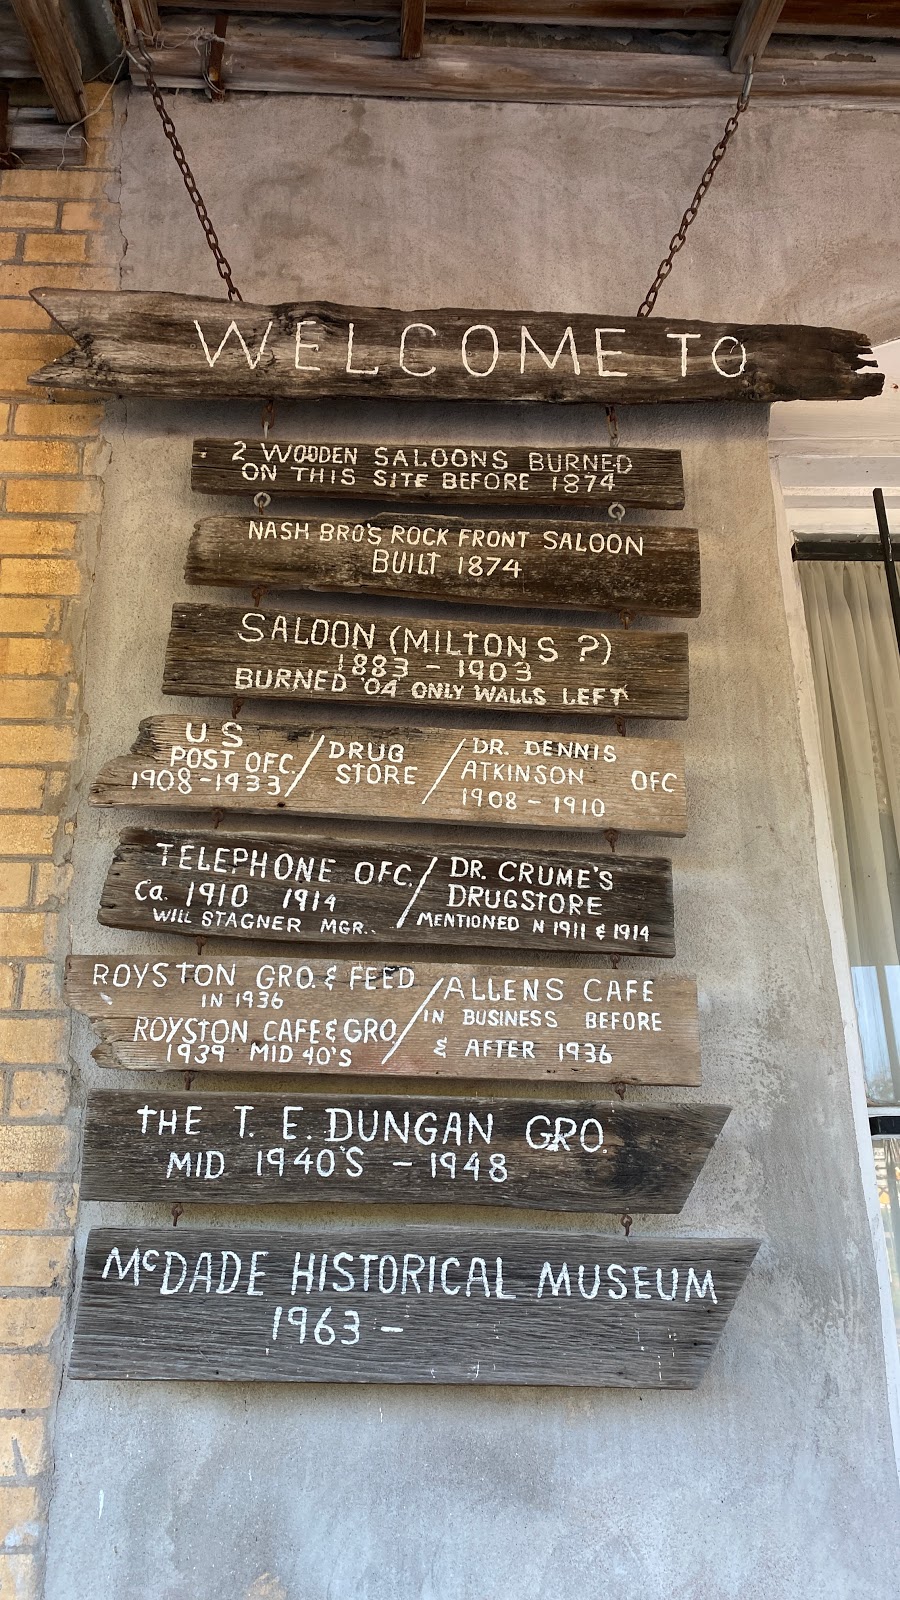 WELCOME TO
2 WOODEN SALOONS BURNED
ON THIS SITE BEFORE 1874
NASH BRO'S ROCK FRONT SALOON
BUILT 1874
SALOON (MILTONS ?)
1883 - 1903
BURNED '04 ONLY WALLS LEFT
U.S
POST OFC.
1908-1933
/
DRUG
STORE
/
DR. DENNIS
ATKINSON OFC
1908 - 1910
TELEPHONE OFC.
Ca. 1910 1914
WILL STAGNER MGR..
/
DR. CRUME'S
DRUGSTORE
MENTIONED N 1911 & 1914
ROYSTON GRO. & FEED
IN 1936
ROYSTON CAFE & GRO
1939 MID 40'S
/
ALLENS CAFE
IN BUSINESS BEFORE
& AFTER 1936
THE T. E. DUNGAN GRO.
MID 1940'S - 1948
McDADE HISTORICAL MUSEUM
1963 -